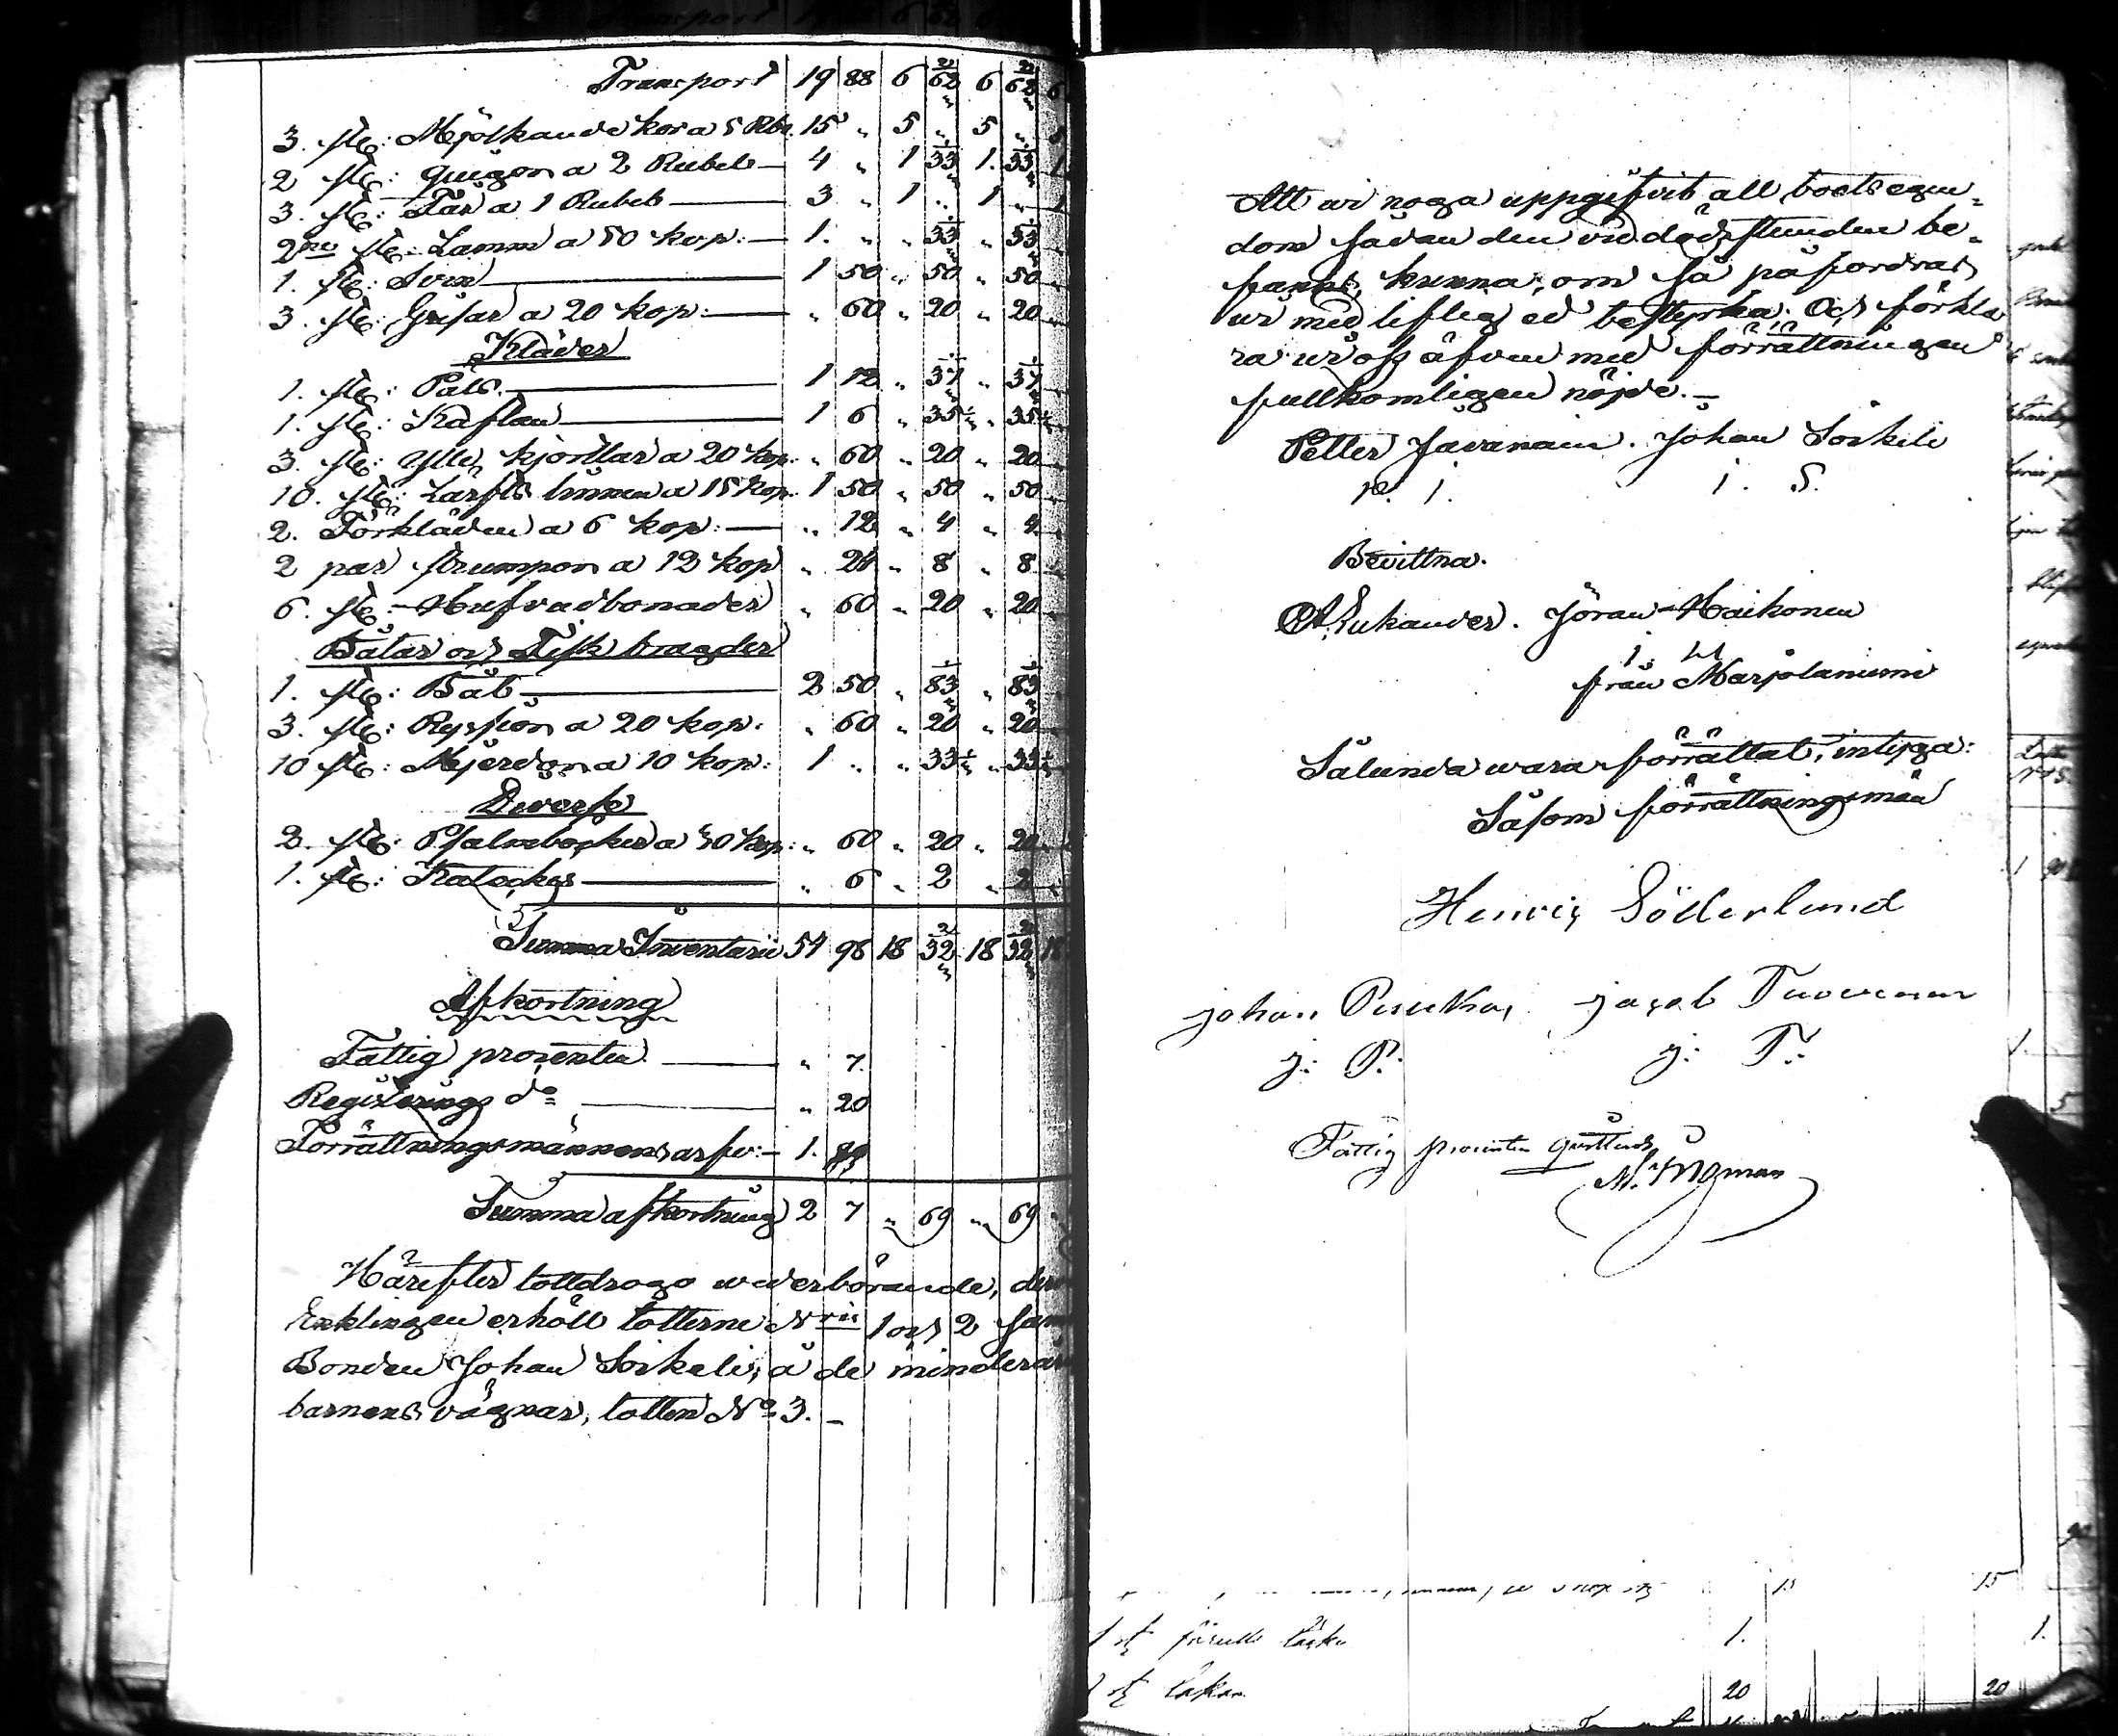 Transport 19 88 6 62 2/3 6 62 2/3
3. stk: Mjölkande kor a 5 Rbl. 15 „ 5 „ 5 „
2 stk: quigor a 2 Rubel 4 „ 1 33 1/3 1. 33 1/3
3. stk: Får a 1 Rubel 3 „ 1 „ 1 „
2ne stk: Lamm a 50 kop: 1. „ „ 33 1/3 „ 33 1/3
1. stk: Svin 1 50 „ 50 „ 50
3. stk: Grisar a 20 kop: „ 60 „ 20 „ 20
Kläder
1. stk: Päls 1 12 „ 37 1/3 „ 37 1/3
1. stk: Kaftan 1 6 „ 35 1/3 „ 35 1/3
3. stk: Ylle kjortlar a 20 kop: „ 60 „ 20 „ 20
10. stk: Lärfts linnen a 15 kop. 1 50 „ 50 „ 50
2. Förkläden a 6 kop: „ 12 „ 4 „ 4
2 par strumpor a 12 kop „ 24 „ 8 „ 8
6. stk: Hufvudbonader „ 60 „ 20 „ 20
Båtar och Fisk bragder
1. stk: Båt 2 50 „ 83 1/3 „ 83 1/3
3. stk: Ryssjor a 20 kop: „ 60 „ 20 „ 20
10 stk: Mjerdor a 10 kop: 1 „ „ 33 1/3 „ 33 1/3
Diverse
2. stk: Psalmböcker a 30 kop: „ 60 „ 20 „ 20
1. stk: Kateches „ 6 „ 2 „ 2
Summa Inventarii 54 98 18 32 2/3 18 32 2/3 18
Afkortning
Fattig procenten „ 7.
Registerings do „ 20
Förrättningsmännens arfv: 1. 80
Summa afkortning 2 7 „ 69 „ 69
Härefter lottdrogo wederbörande, der
Enklingen erhöll lotterne Nrii 1 och 2 sam
Bonden Johan Sorkeli, å de minderår
barnens vägnar, lotten No 3.
Att wi noga uppgifvit all boets egen=
dom sådan den vid dödsstunden be=
fants, kunna, om så påfordras
wi med liflig ed bestyrka. Och förkla
ra wi oss äfven med förrättningen
fullkomligen nöjde.
Petter Javanain. Johan Sorkeli
P. I. I. S.
Bevittna.
Jöran Haikonen
I. H
från Marjolaniemi
Sålunda wara förrättat, intyga:
Såsom förrättningsmän
Henric Söderlund
Johan Puukka, Jacob Tuovinen
J: P: J: T:
Fattig procenten qvitteras
15
1. 1.
2 st Lakan 20 20